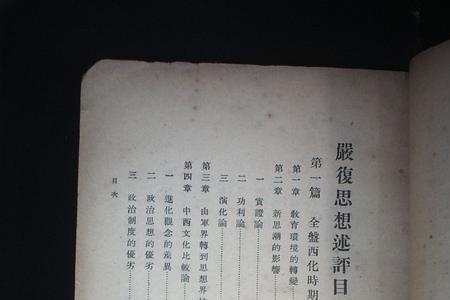 嚴復思想述評目
第一篇 全盤西化時期
第一章 教育環境的轉變
第二章 新思潮的影響
一 實證論
二 功利論
三 演化論
第三章 由軍界轉到思想界的
第四章 中西文化比較論
一 進化觀念的差異
二 政治思想的優劣
三 政治制度的優劣
目次